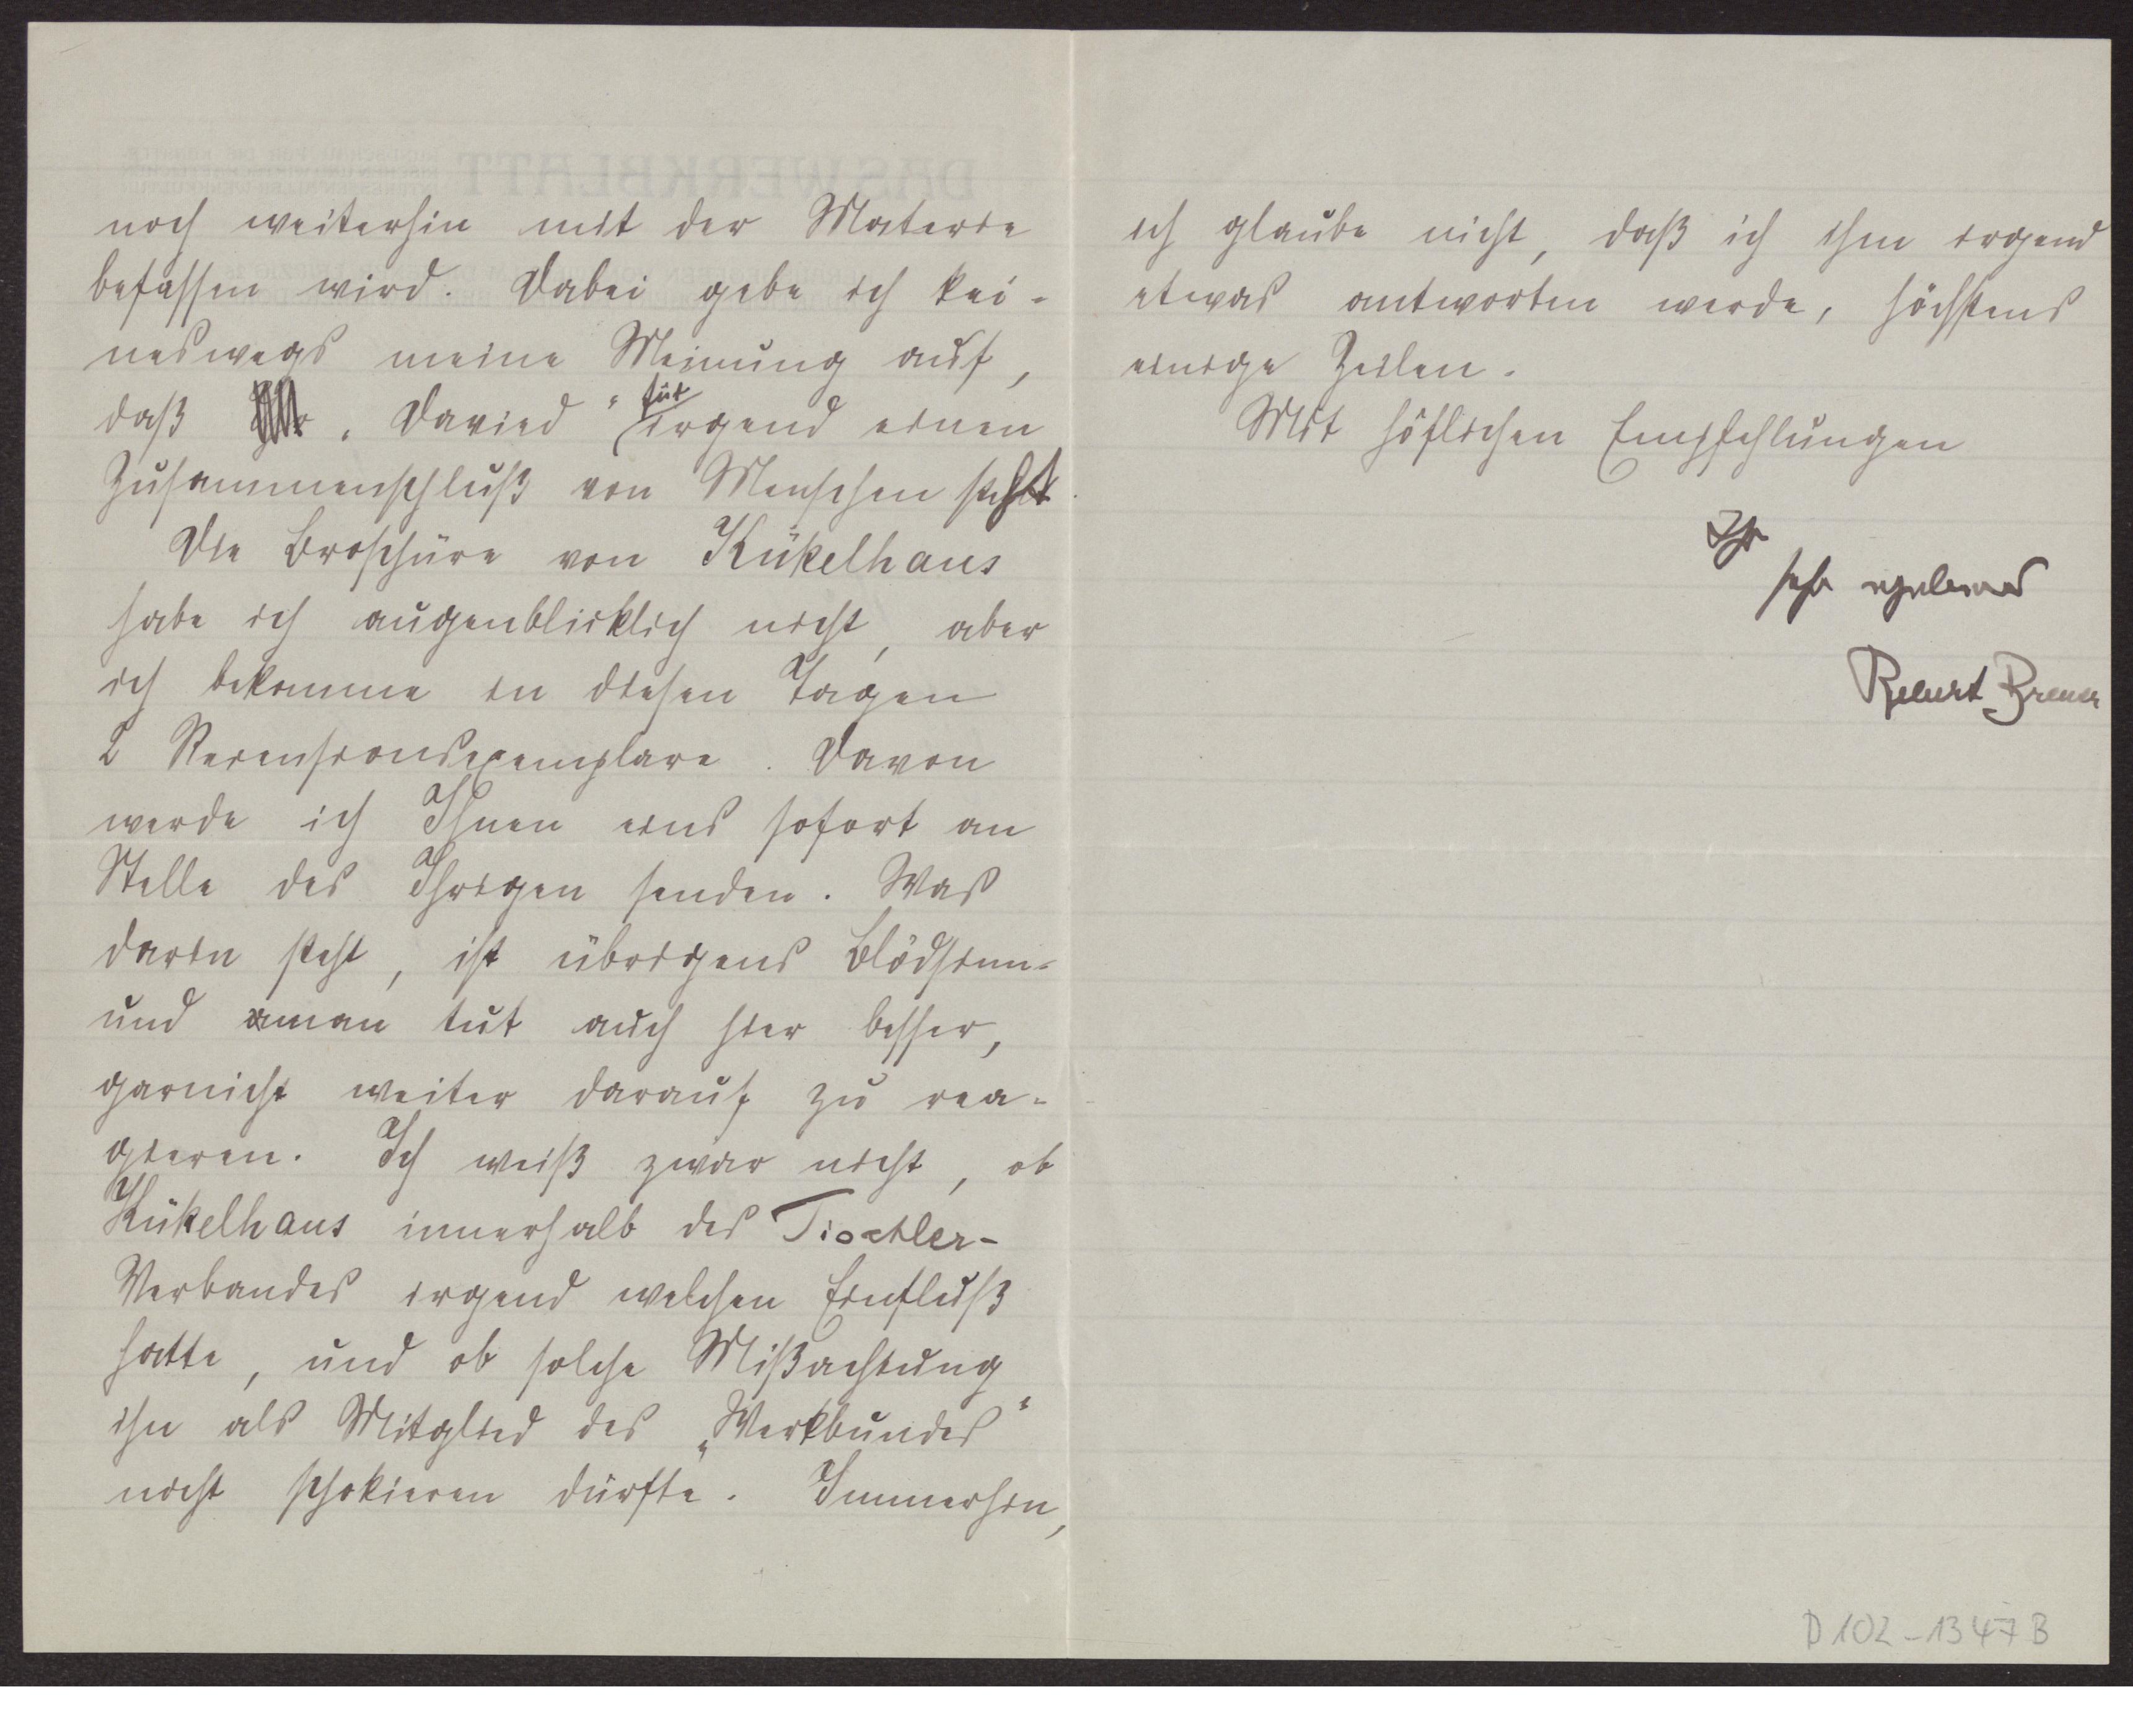 noch weiterhin mit der Materie
befassen wird. Dabei gebe ich kei-
neswegs meine Meinung auf,
daß „David“ für irgend einen
Zusammenschluß von Menschen steht.
Die Broschüre von Kükelhaus
habe ich augenblicklich nicht, aber
ich bekomme in diesen Tagen
2 Rezensionsexemplare. Davon
werde ich Ihnen eins sofort an
Stelle des Ihrigen senden. Was
darin steht, ist übrigens Blödsinn-
und man tut auch hier besser,
garnicht weiter darauf zu rea-
gieren. Ich weiß zwar nicht, ob
Kükelhaus innerhalb des Tischler-
Verbandes irgend welchen Einfluß
hatte, und ob solche Mißachtung
ihn als Mitglied des „Werkbundes“
nicht schokieren dürfte. Immerhin,
ich glaube nicht, daß ich ihm irgend
etwas antworten werde, höchstens
einige Zeilen.
Mit höflichen Empfehlungen
Ihr
sehr ergebener
Breuer
D 102-1347 B
DAS WERKBLATT